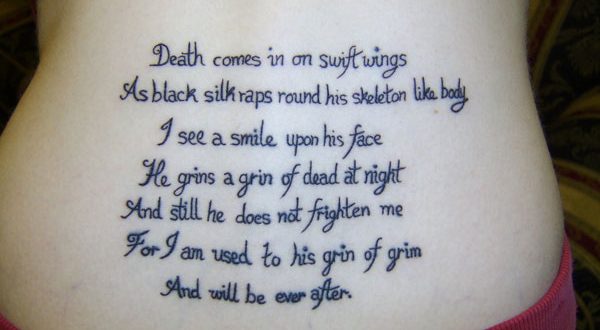 Death comes in on swift wings
As black silk raps round his skeleton like body
I see a smile upon his face
He grins a grin of dead at night
And still he does not frighten me
For I am used to his grin of grim
And will be ever after.